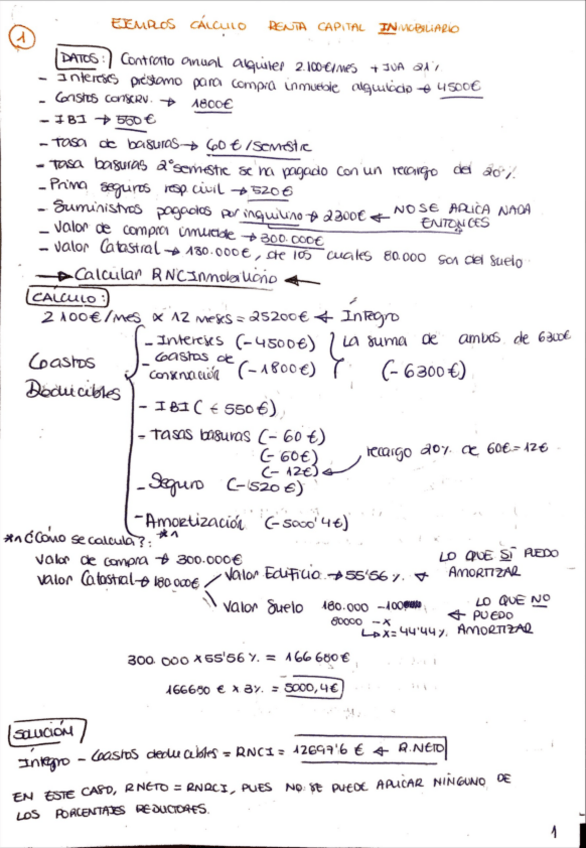 EJEMPLOS CÁLCULO RENTA CAPITAL INMOBILIARIO
1
DATOS: Contrato anual alquiler 2.100€/mes + IVA 21%
- Intereses préstamo para compra inmueble alquilado → 4500€
- Gastos conserv. → 1800€
- IBI → 550€
- Tasa de basuras → 60€/semestre
- Tasa basuras 2º semestre se ha pagado con un recargo del 20%
- Prima seguros resp civil → 520€
- Suministros pagados por inquilino → 2300€ ← NO SE APLICA NADA ENTONCES
- Valor de compra inmueble → 300.000€
- Valor Catastral → 180.000€, de los cuales 80.000 son del suelo
→ Calcular RNC Inmobiliario ←
CÁLCULO:
2100€/mes x 12 meses = 25200€ ← Íntegro
Gastos Deducibles
- Intereses (-4500€)
- Gastos de conservación (-1800€)
La suma de ambos de 6300€
(-6300€)
- IBI (€ 550€)
- Tasas basuras (-60€)
(-60€)
(-12€) recargo 20% de 60€ = 12€
- Seguro (-520€)
- Amortización (-5000'4€)
*1
*1 ¿Cómo se calcula?:
Valor de compra → 300.000€
Valor Catastral → 180.000€
Valor Edificio → 55'56% → LO QUE SÍ PUEDO AMORTIZAR
Valor Suelo 180.000 - 100
80000 - x
↳ x = 44'44%
← LO QUE NO PUEDO AMORTIZAR
300.000 x 55'56% = 166680€
166680€ x 3% = 5000,4€
SOLUCIÓN
Íntegro - Gastos deducibles = RNCI = 12697'6€ ← R.NETO
EN ESTE CASO, R NETO = RNRCI, PUES NO SE PUEDE APLICAR NINGUNO DE
LOS PORCENTAJES REDUCTORES.
1